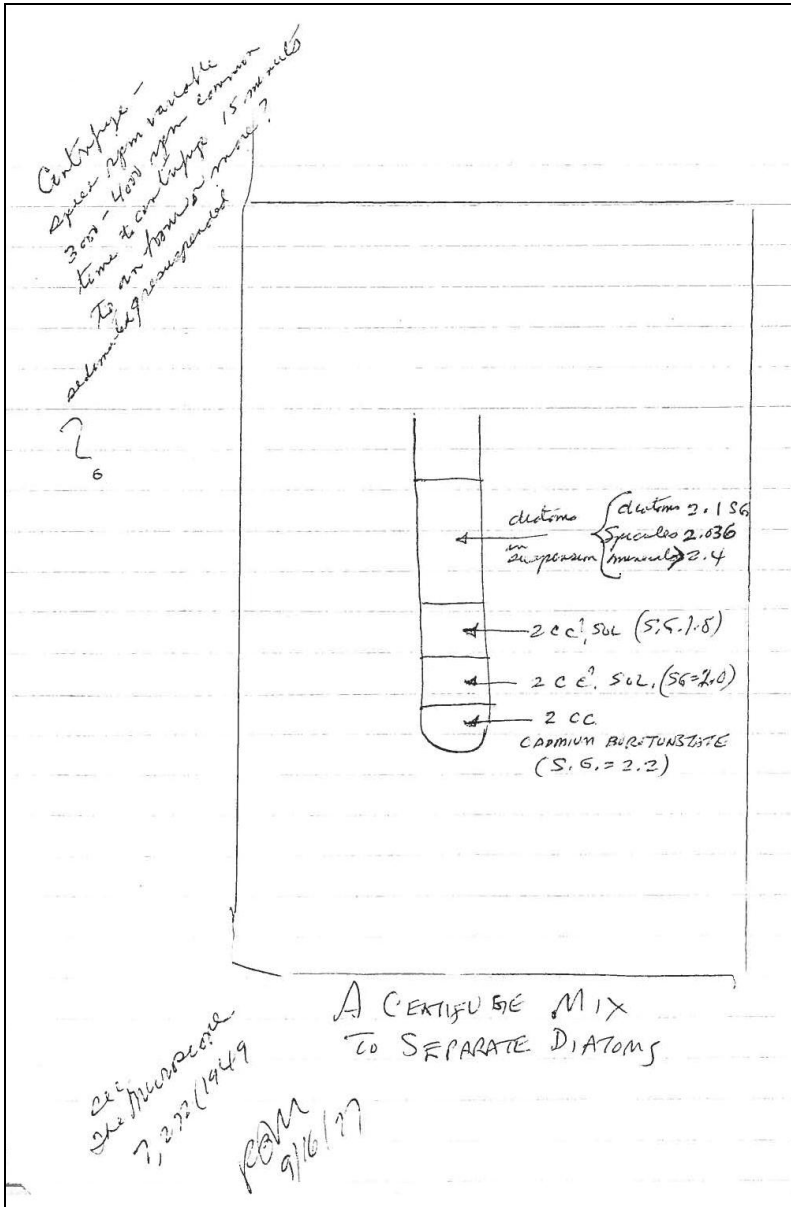 Centrifuge –
speed rpm variable
3000 – 4000 rpm common
time to centrifuge 15 minutes
to an hour or more?
6
diatoms
in
suspension
diatoms 2.1 SG
Spicules 2.036
minerals > 2.4
2 CC, SOL (S.G. 1.8)
2 CC, SOL. (SG=2.0)
2 CC.
CADMIUM BOROTUNSTATE
(S.G. = 2.2)
A CENTIFUGE MIX
TO SEPARATE DIATOMS
The Microscope
7, 272 (1949
9/16/77